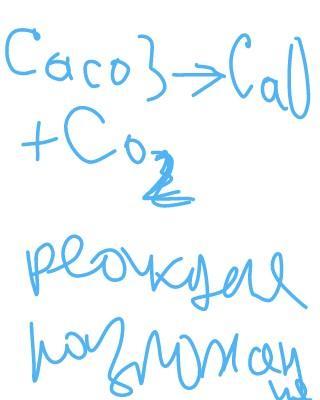 Caco3→CaO
+Co2
реакция
разложен
ия